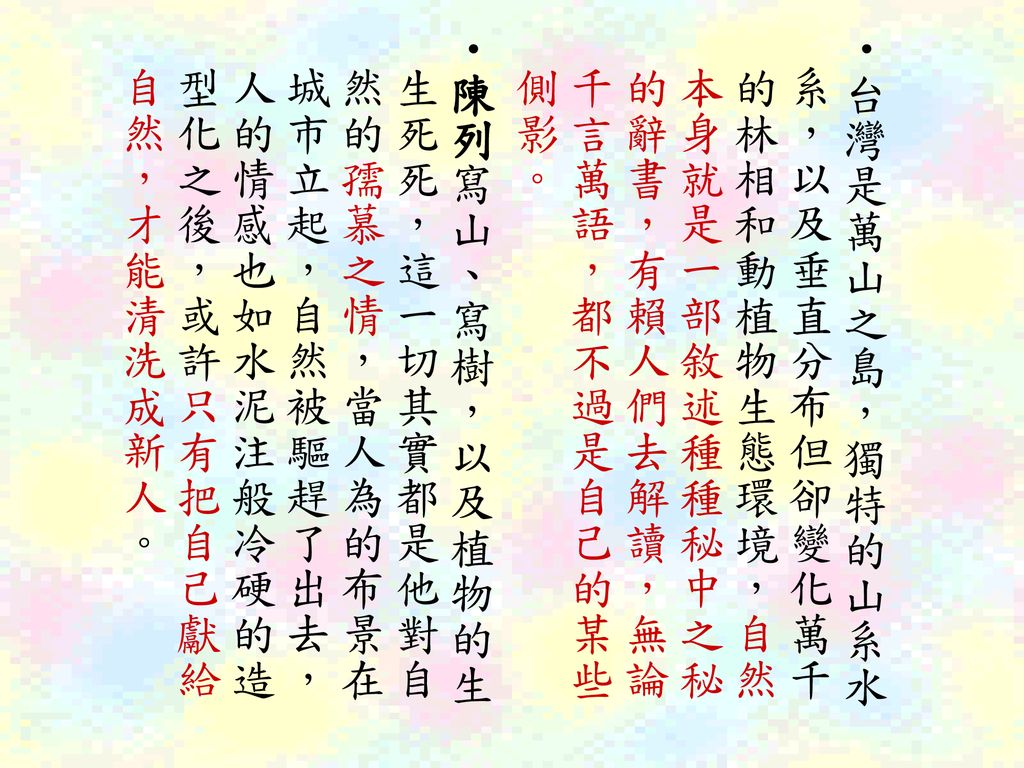 •台灣是萬山之島，獨特的山系水
系，以及垂直分布但卻變化萬千
的林相和動植物生態環境，自然
本身就是一部敘述種種秘中之秘
的辭書，有賴人們去解讀，無論
千言萬語，都不過是自己的某些
側影。
•陳列寫山、寫樹，以及植物的生
生死死，這一切其實都是他對自
然的孺慕之情，當人為的布景在
城市立起，自然被驅趕了出去，
人的情感也如水泥注般冷硬的造
型化之後，或許只有把自己獻給
自然，才能清洗成新人。